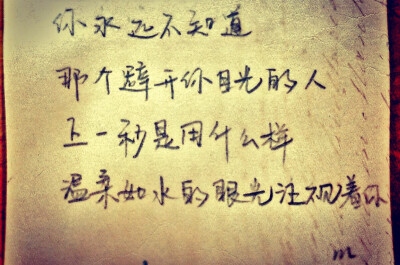 你永远不知道
那个辟开你目光的人
上一秒是用什么样
温柔如水的眼光注视着你
m